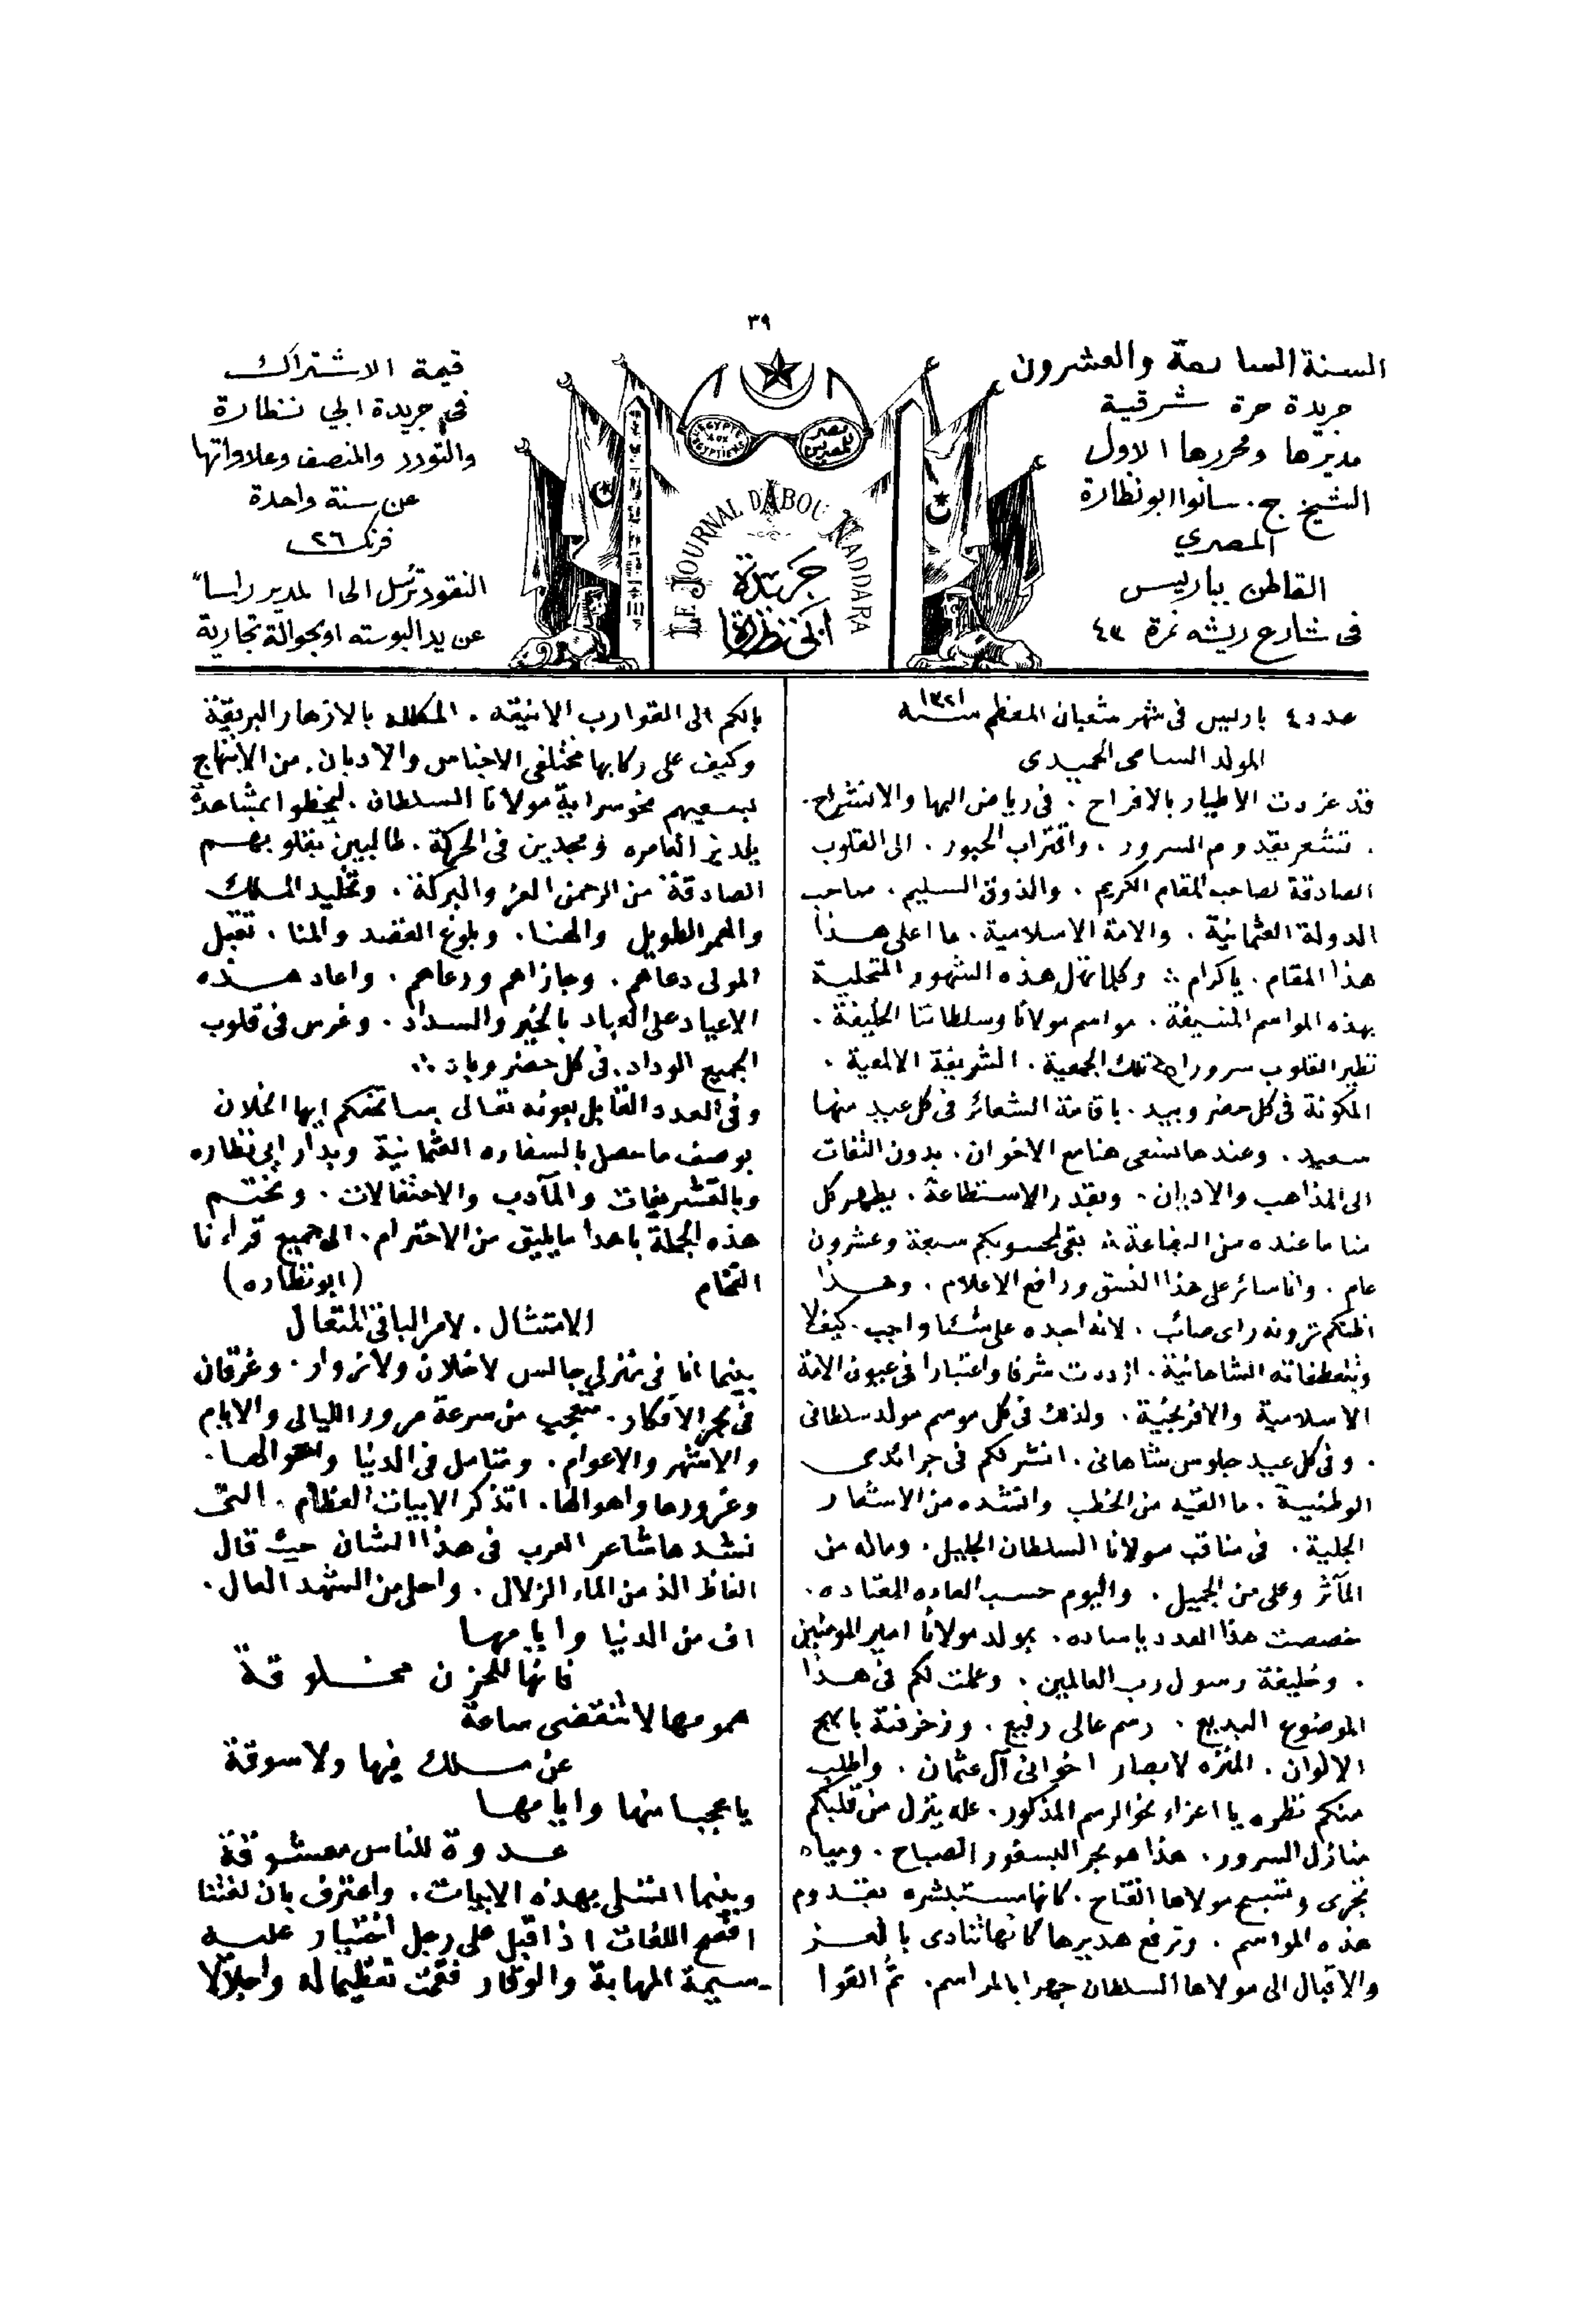 ٣٩
السنة السابعة والعشرون
جريدة حرة شرقية
مديرها ومحررها الاول
الشيخ ج. سانوا ابونظارة
المصري
القاطن بباريس
فى شارع ريشه نمرة ٤٣
LE JOURNAL D'ABOU NADDARA
جريدة
ابى نظارة
مصر للمصريين
L'EGYPTE AUX EGYPTIENS
قيمة الاشتراك
فى جريدة ابي نظارة
والتودد والمنصف وعلاواتها
عن سنة واحدة
فرنك ٢٦
النقود ترسل الى المدير راسا
عن يد البوسته او بحوالة تجارية
عدد ٤ باريس فى شهر شعبان المعظم سنة ١٣٢١
المولد السامى الحميدى
قد غردت الاطيار بالافراح . فى رياض البها والانشراح.
. تشعر بقدوم السرور . واقتراب الحبور . الى القلوب
الصادقة لصاحب المقام الكريم . والذوق السليم . صاحب
الدولة العثمانية . والامة الاسلامية . ما اعلى هذا
هذا المقام . يا كرام ؞ وكلما تهل هذه الشهور المتحلية
بهذه المواسم المنيفة . مواسم مولانا وسلطاننا الخليفة .
تطير القلوب سرورا تلك الجمعية . الشريفة الالمعية .
المكونة فى كل حضر وبيد . باقامة الشعائر فى كل عيد منها
سعيد . وعندها نسعى هنا مع الاخوان . بدون التفات
الى المذاهب والاديان . وبقدر الاستطاعة . يظهر كل
منا ما عنده من البضاعة ؞ بقى لمحسوبكم سبعة وعشرون
عام . وانا سائر على هذا النسق ورافع الاعلام . وهذا
اظنكم ترونه راى صائب . لانه اجده على شئا واجب . كيف لا
وبتعطفاته الشاهانية . ازددت شرفا واعتبارا فى عيون الامة
الاسلامية والافرنجية . ولذلك فى كل موسم مولد سلطانى
. وفى كل عيد جلوس شاهانى . انشر لكم فى جرائدى
الوطنية . ما القيه من الخطب وانشده من الاشعار
الجلية . فى مناقب مولانا السلطان الجليل . وماله من
المآثر وعلى من الجميل . واليوم حسب العاده المعتاده .
خصصت هذا العدد ياساده . بمولد مولانا امير المومنين
. وخليفة رسول رب العالمين . وعملت لكم فى هذا
الموضوع البديع . رسم عالى رفيع . وزخرفته بابهج
الالوان . المنزه لابصار اخوانى آل عثمان . واطلب
منكم نظره يا اعزاء نحو الرسم المذكور . عله ينزل من قلبكم
منازل السرور . هذا هو بحر البسفور الصباح . ومياه
تجرى وتسبح مولاها الفتاح . كانها مستبشره بقدوم
هذه المواسم . وترفع هديرها كانها تنادى بالعز
والاقبال الى مولاها السلطان جهرا بالمراسم . ثم القوا
بالكم الى القوارب الانيقه . المكلله بالازهار البريقة
وكيف على ركابها مختلفى الاجناس والاديان . من الابتهاج
بسعيهم نحو سراية مولانا السلطان . ليحظوا بمشاهدة
يلديز العامره ومجدين فى الحركة . طالبين بقلوبهم
الصادقة من الرحمن العز والبركة . وتخليد الملك
والعمر الطويل والهنا . وبلوغ القصد والمنا . تقبل
المولى دعاهم . وجازاهم ورعاهم . واعاد هذه
الاعياد على العباد بالخير والسداد . وغرس فى قلوب
الجميع الوداد . فى كل حضر وباد ؞
وفى العدد القابل بعونه تعالى يساتحفكم ايها الخلان
بوصف ما حصل بالسفاره العثمانية وبدار ابى نظاره
وبالتشريفات والمآدب والاحتفالات . ونختم
هذه الجملة باهدا ما يليق من الاحترام . الى جميع قراءنا
الفخام (ابو نظاره)
الامتثال . لامر الباقى المتعال
بينما انا فى منزلي جالس لا خلان ولا زوار . وغرقان
فى بحر الافكار . متعجب من سرعة مرور الليالى والايام
والاشهر والاعوام . ومتامل فى الدنيا واحوالها .
وغرورها واهوالها . اتذكر الابيات العظام . التى
نشدها شاعر العرب فى هذا الشان حيث قال
الفاظ الذ من الماء الزلال . واحلى من الشهد العال .
اف من الدنيا وايامها
فانها للحزن مخلوقة
همومها لا تنقضى ساعة
عن ملك فيها ولا سوقة
يا عجبا منها وايامها
عدوة للناس معشوقة
وبينما اتسلى بهذه الابيات . واعترف بان لغتنا
افصح اللغات اذ اقبل على رجل اختيار عليه
سيمة المهابة والوقار فقمت تعظيما له واجلالا